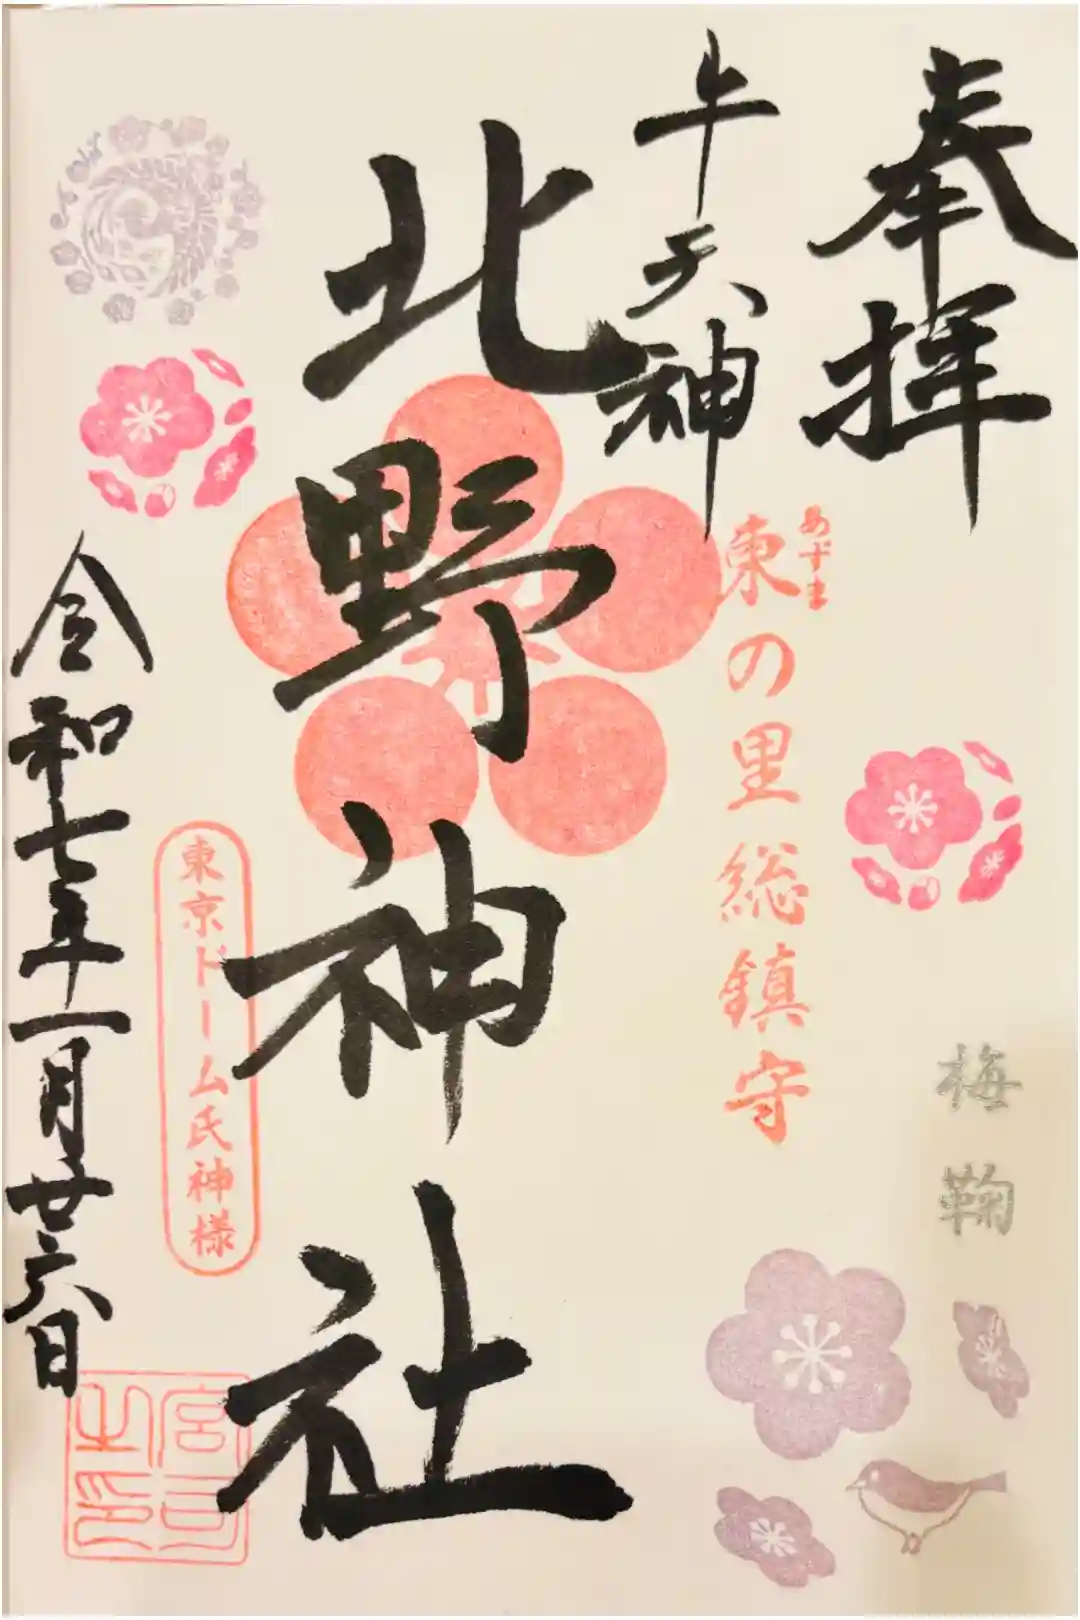 奉拝
牛天神
あずま
東の里総鎮守
梅鞠
北野神社
東京ドーム氏神様
令和七年十一月廿六日
宮司之印